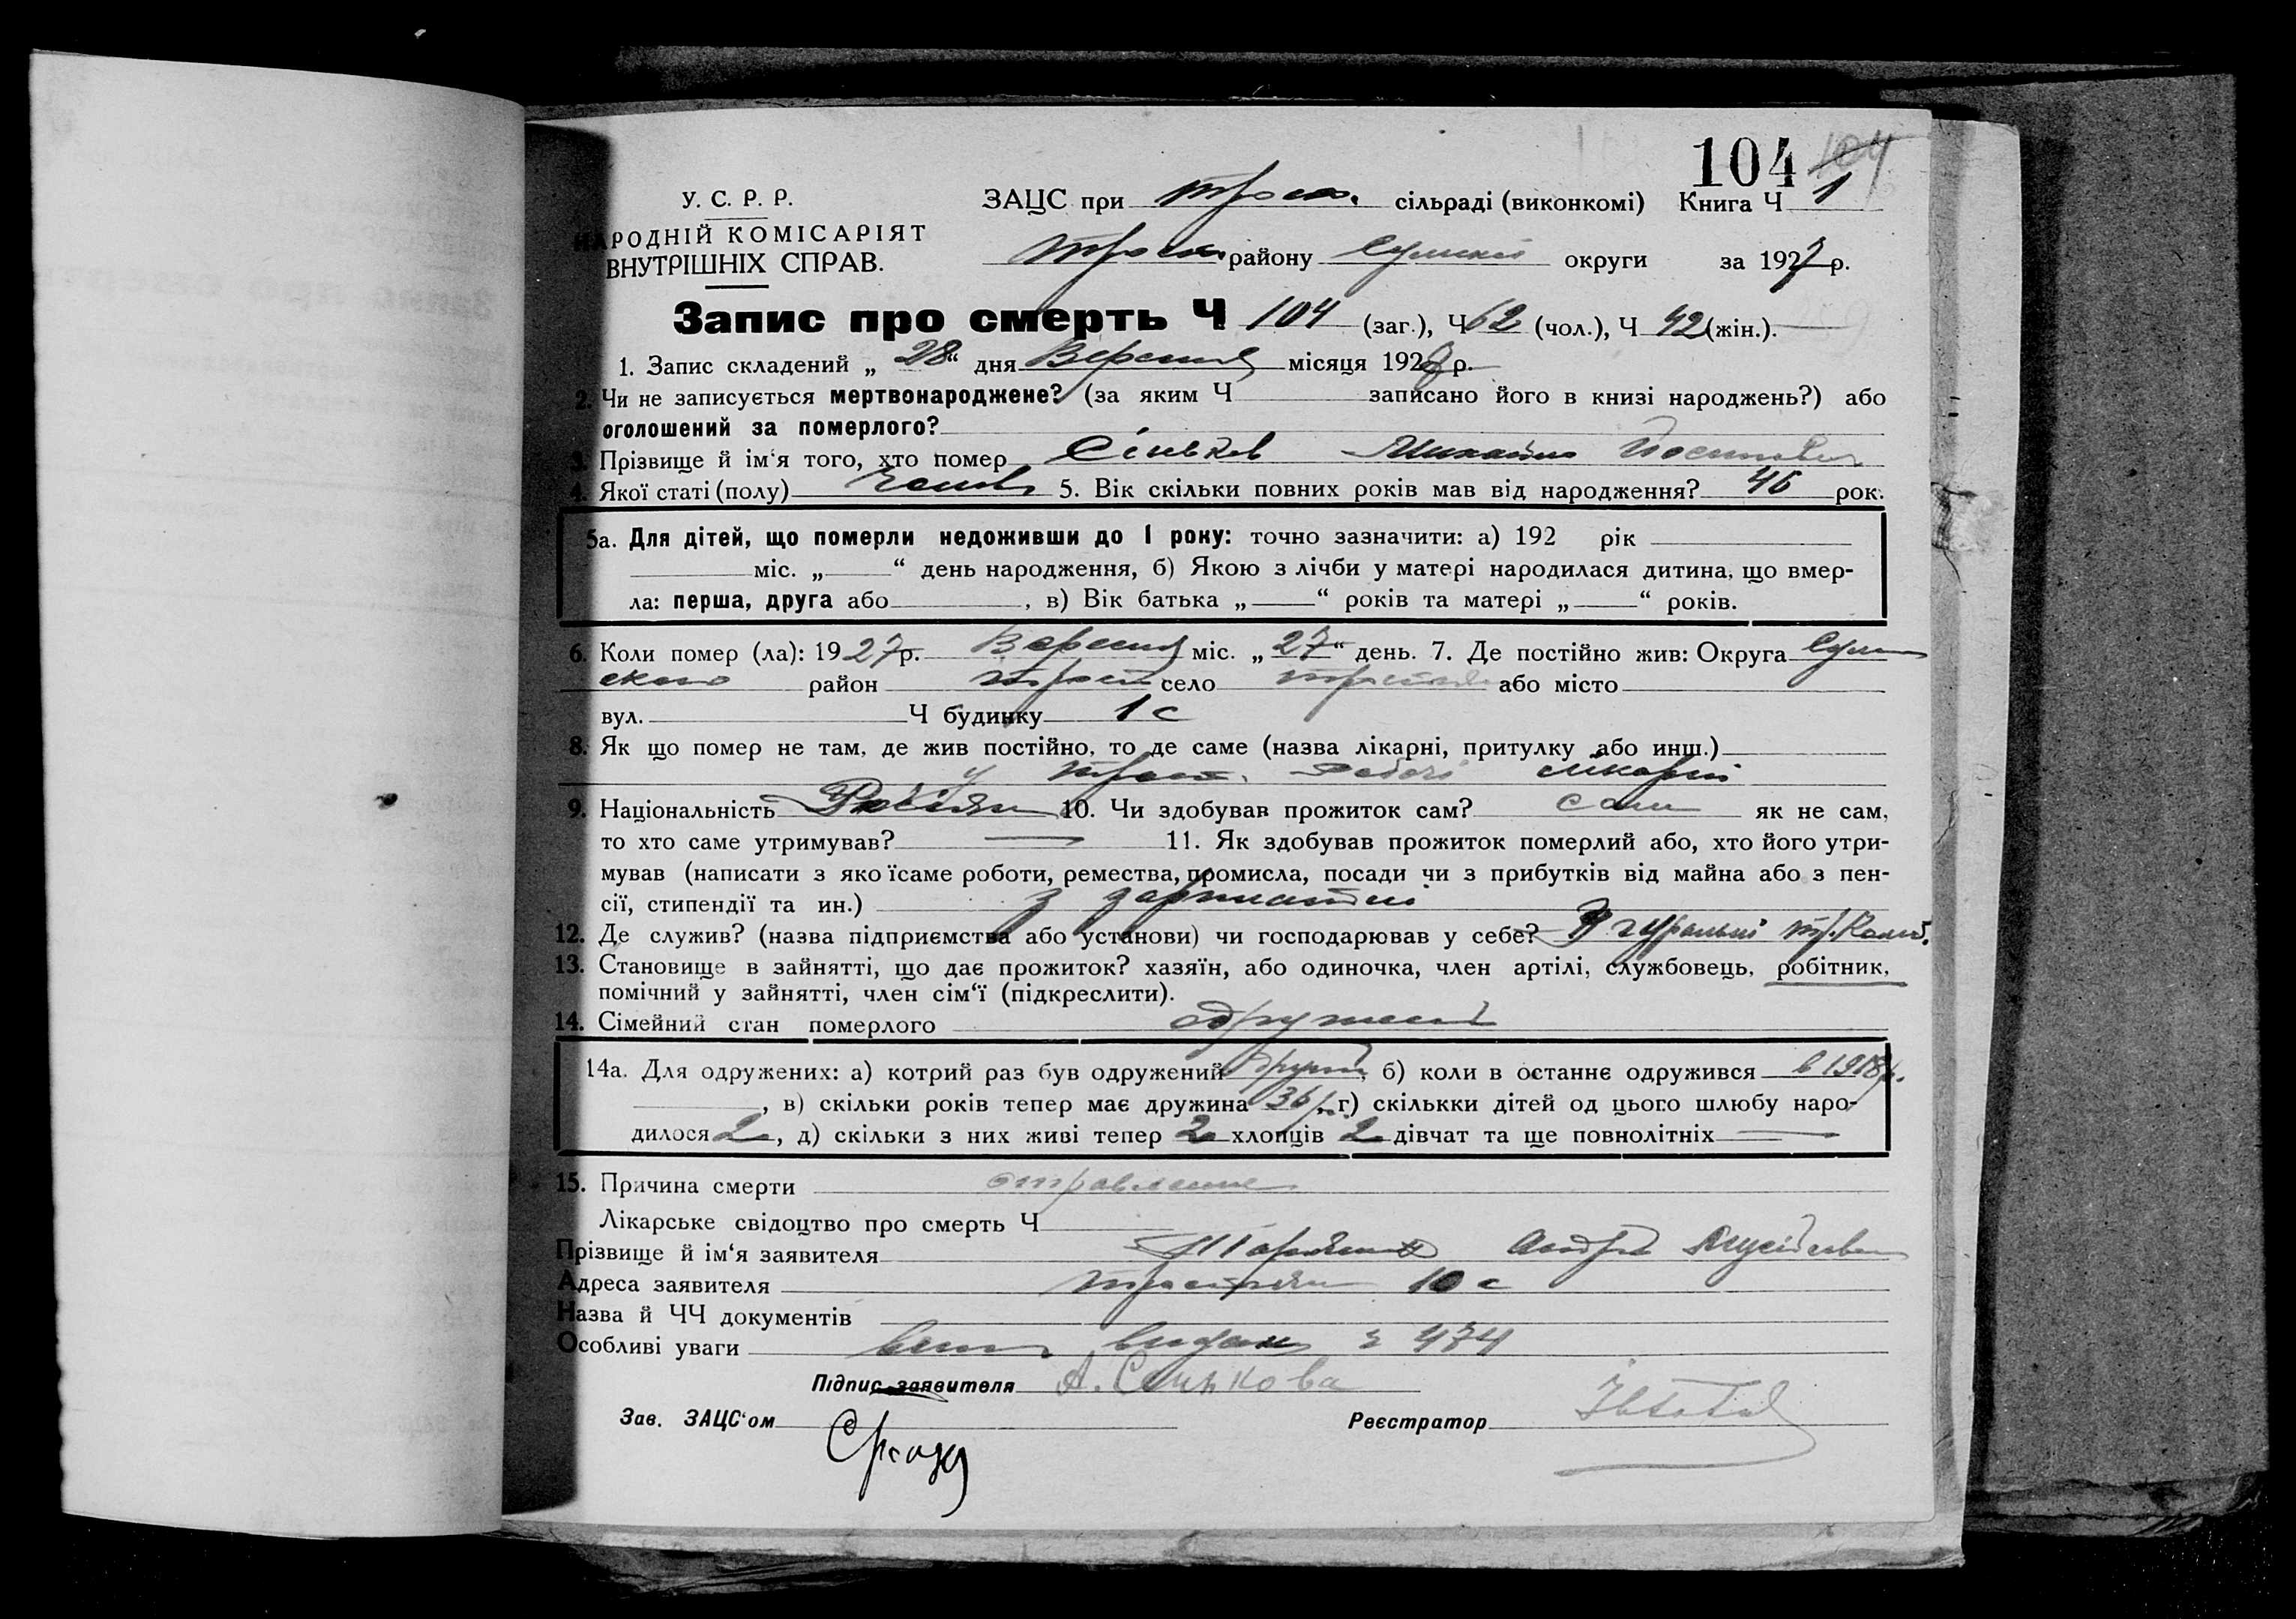 104 104
У. С. Р. Р.
НАРОДНІЙ КОМІСАРІЯТ
ВНУТРІШНІХ СПРАВ.
ЗАЦС при Трост. сільраді (виконкомі) Книга Ч 1
Трост району Сумської округи за 1927 р.
Запис про смерть Ч 104 (заг.), Ч 62 (чол.), Ч 42 (жін.).
1. Запис складений „ 28 “ дня Вересня місяця 1927 р.
2. Чи не записується мертвонароджене? (за яким Ч записано його в книзі народжень?) або
оголошений за померлого?
3. Прізвище й ім‘я того, хто помер Сіньков Михайло Йосипович
4. Якої статі (полу) 5. Вік скільки повних років мав від народження? 46 рок.
5а. Для дітей, що померли недоживши до 1 року: точно зазначити: а) 192 рік
міс. „ “ день народження, б) Якою з лічби у матері народилася дитина, що вмер-
ла: перша, друга або , в) Вік батька „ “ років та матері „ “ років.
6. Коли помер (ла): 1927 р. Вересня міс. „ 27 “ день. 7. Де постійно жив: Округа Сум
ська район Трост село або місто
вул. Ч будинку 1 с
8. Як що помер не там, де жив постійно, то де саме (назва лікарні, притулку або инш.)
у Трост. лікарні
9. Національність 10. Чи здобував прожиток сам? сам як не сам,
то хто саме утримував? 11. Як здобував прожиток померлий або, хто його утри-
мував (написати з якоїсаме роботи, ремества, промисла, посади чи з прибутків від майна або з пен-
сії, стипендії та ин.) з зарплатні
12. Де служив? (назва підприємства або установи) чи господарював у себе? В гуральні
13. Становище в зайнятті, що дає прожиток? хазяїн, або одиночка, член артілі, службовець, робітник,
помічний у зайнятті, член сім‘ї (підкреслити).
14. Сімейний стан померлого одружений
14а. Для одружених: а) котрий раз був одружений другий, б) коли в останнє одружився в 1918 р.
, в) скільки років тепер має дружина 36 р., г) скількки дітей од цього шлюбу наро-
дилося 2, д) скільки з них живі тепер 2 хлопців 2 дівчат та ще повнолітніх
15. Причина смерти отравление
Лікарське свідоцтво про смерть Ч
Прізвище й ім‘я заявителя Андрій
Адреса заявителя Тростян 10 с
Назва й ЧЧ документів
Особливі уваги видан 474
Підпис заявителя А. Сенькова
Зав. ЗАЦС‘ом Реєстратор